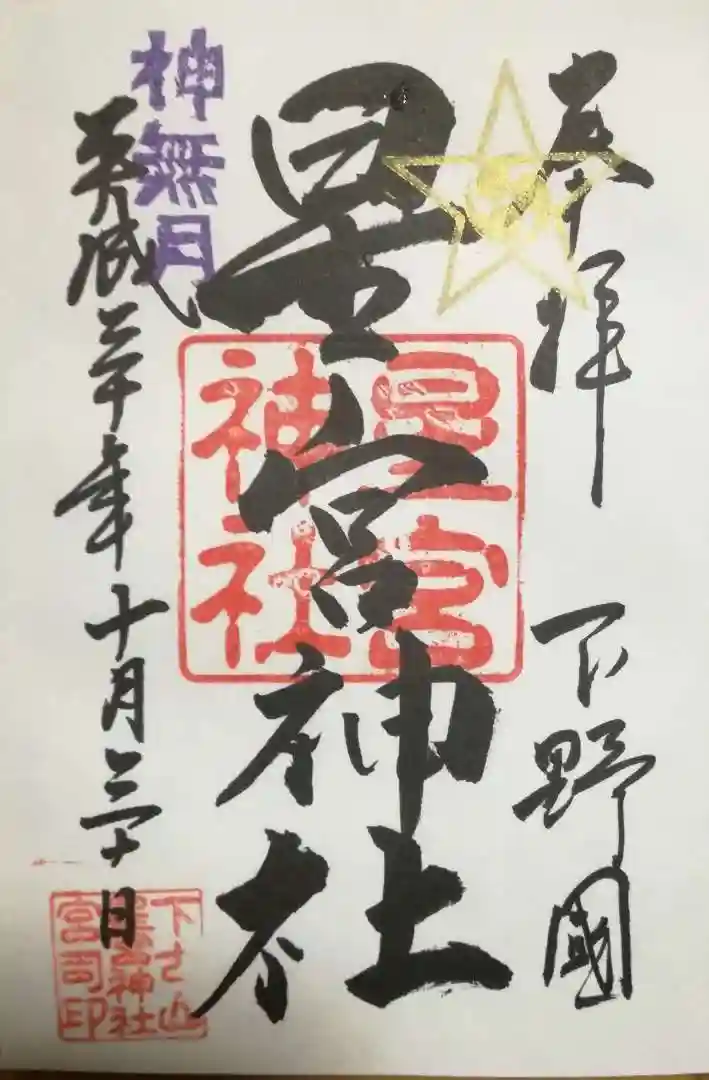 奉拝
下野國
星宮神社
星宮
神社
神無月
平成三十年十月三十日
下古山
星宮神社
宮司印